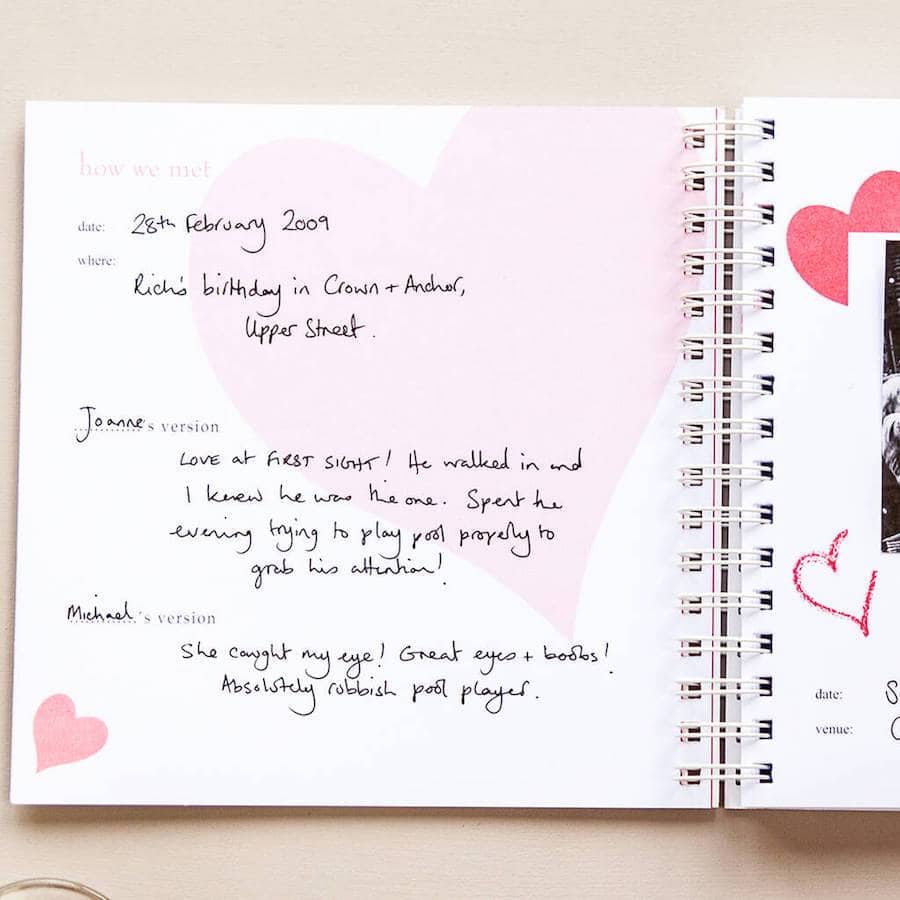 how we met
date: 28th February 2009
where:
Rich's birthday in Crown + Anchor,
Upper Street.
Joanne's version
LOVE at FIRST SIGHT! He walked in and
I knew he was the one. Spent the
evening trying to play pool properly to
grab his attention!
Michael's version
She caught my eye! Great eyes + boobs!
Absolutely rubbish pool player.
date:
venue: